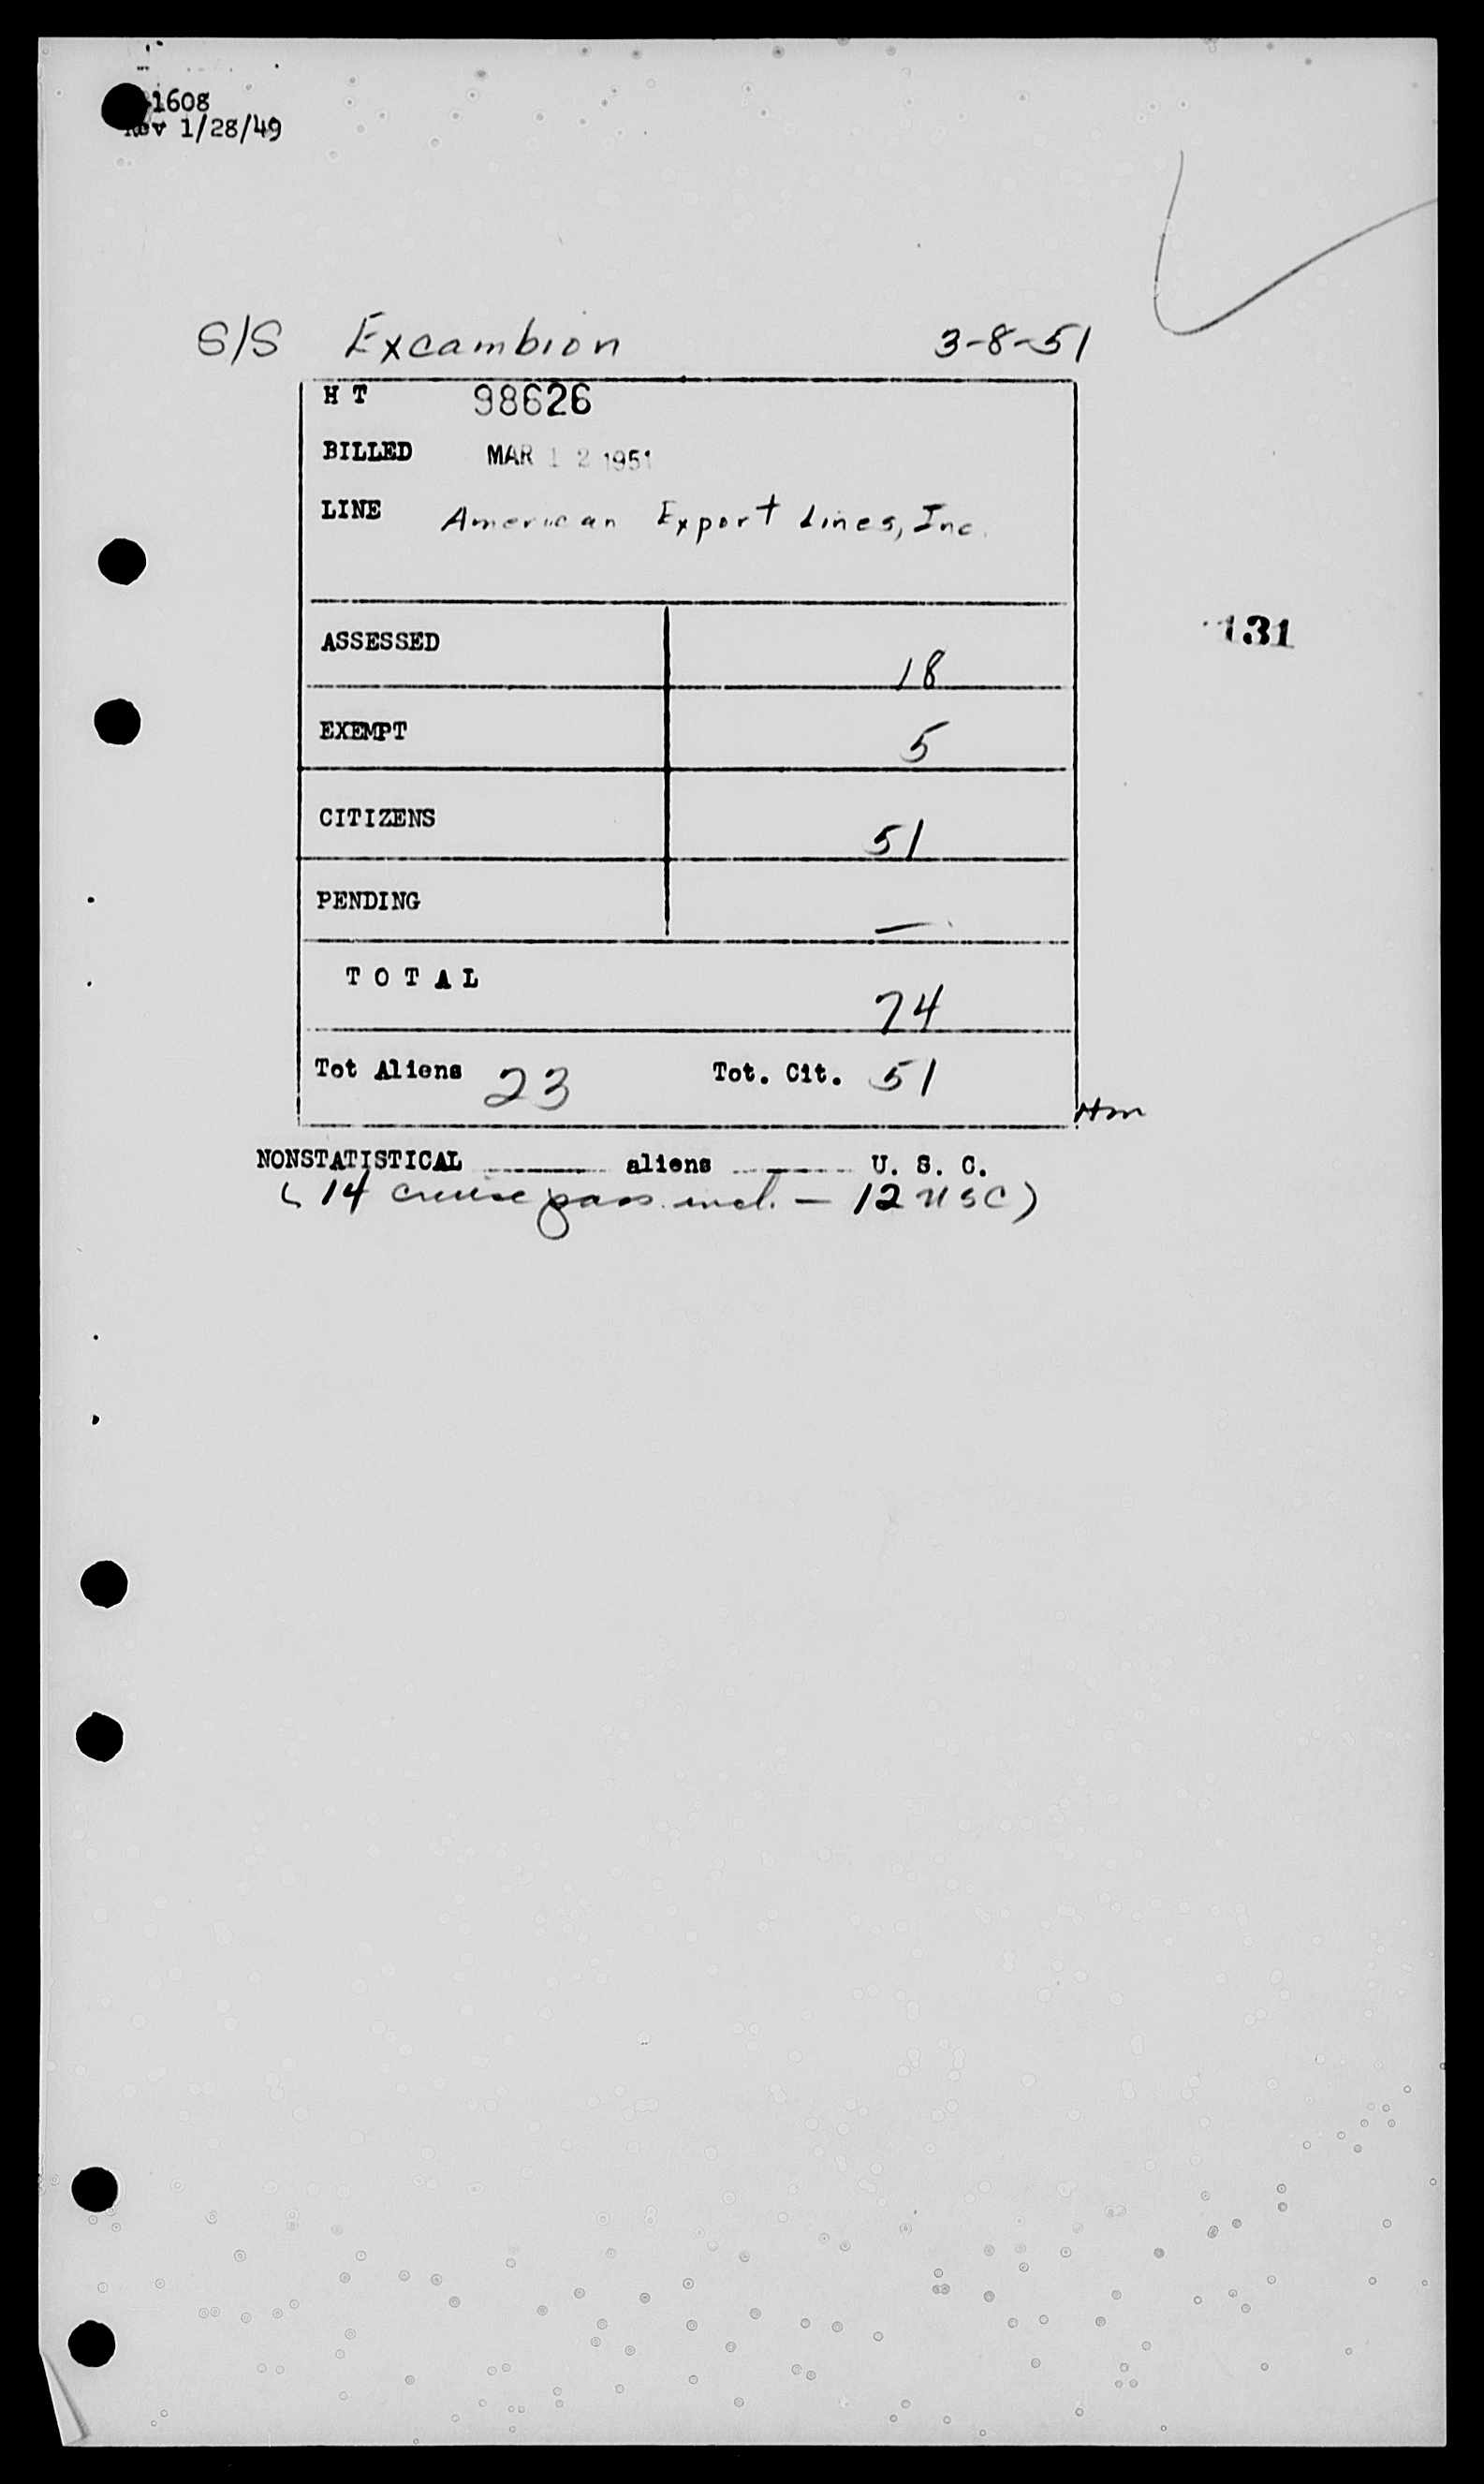 1608
Rev 1/28/49
S/S Excambion 3-8-51
H T 98626
BILLED MAR 12 1951
LINE American Export Lines, Inc.
131
ASSESSED 18
EXEMPT 5
CITIZENS 51
PENDING —
TOTAL 74
Tot Aliens 23 Tot. Cit. 51
Hm
NONSTATISTICAL ——— aliens ——— U. S. C.
( 14 cruise pass. incl. — 12 USC )